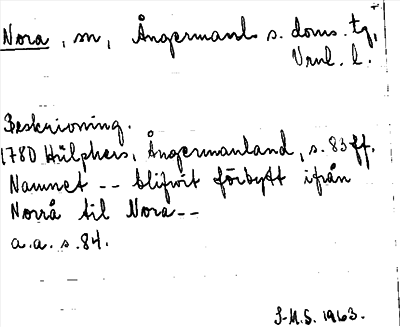 Nora, sn, Ångermanl. s. doms. tg,
Vrnl. l.
Beskrivning.
1780 Hülphers, Ångermanland, s. 83 ff.
Namnet -- blifwit förbytt ifrån
Norrå til Nora --
a.a. s. 84.
S-H.S. 1963.